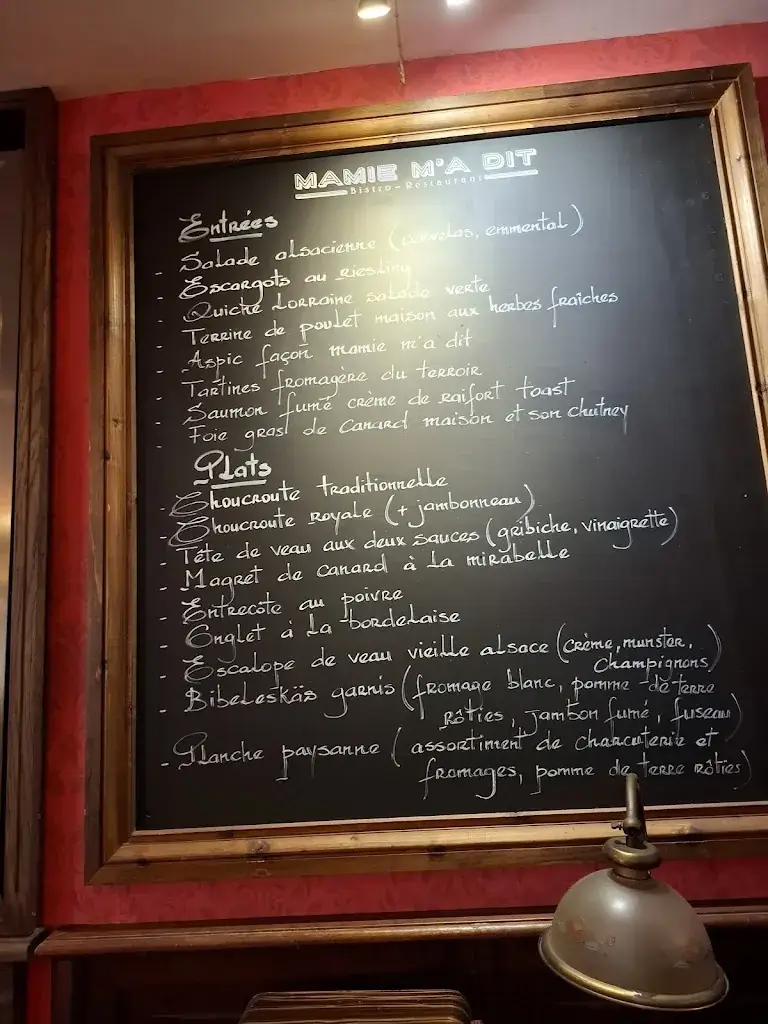 MAMIE M'A DIT
Bistro-Restaurant
Entrées
- Salade alsacienne (cervelas, emmental)
- Escargots au riesling
- Quiche Lorraine salade verte
- Terrine de poulet maison aux herbes fraîches
- Aspic façon mamie m'a dit
- Tartines fromagère du terroir
- Saumon fumé crème de raifort toast
- Foie gras de canard maison et son chutney
Plats
- Choucroute traditionnelle
- Choucroute royale (+ jambonneau)
- Tête de veau aux deux sauces (gribiche, vinaigrette)
- Magret de canard à la mirabelle
- Entrecôte au poivre
- Onglet à la bordelaise
- Escalope de veau vieille alsace (crème, munster,
champignons)
- Bibeleskäs garnis (fromage blanc, pomme de terre
rôties, jambon fumé, fuseau)
- Planche paysanne (assortiment de charcuterie et
fromages, pomme de terre rôties)